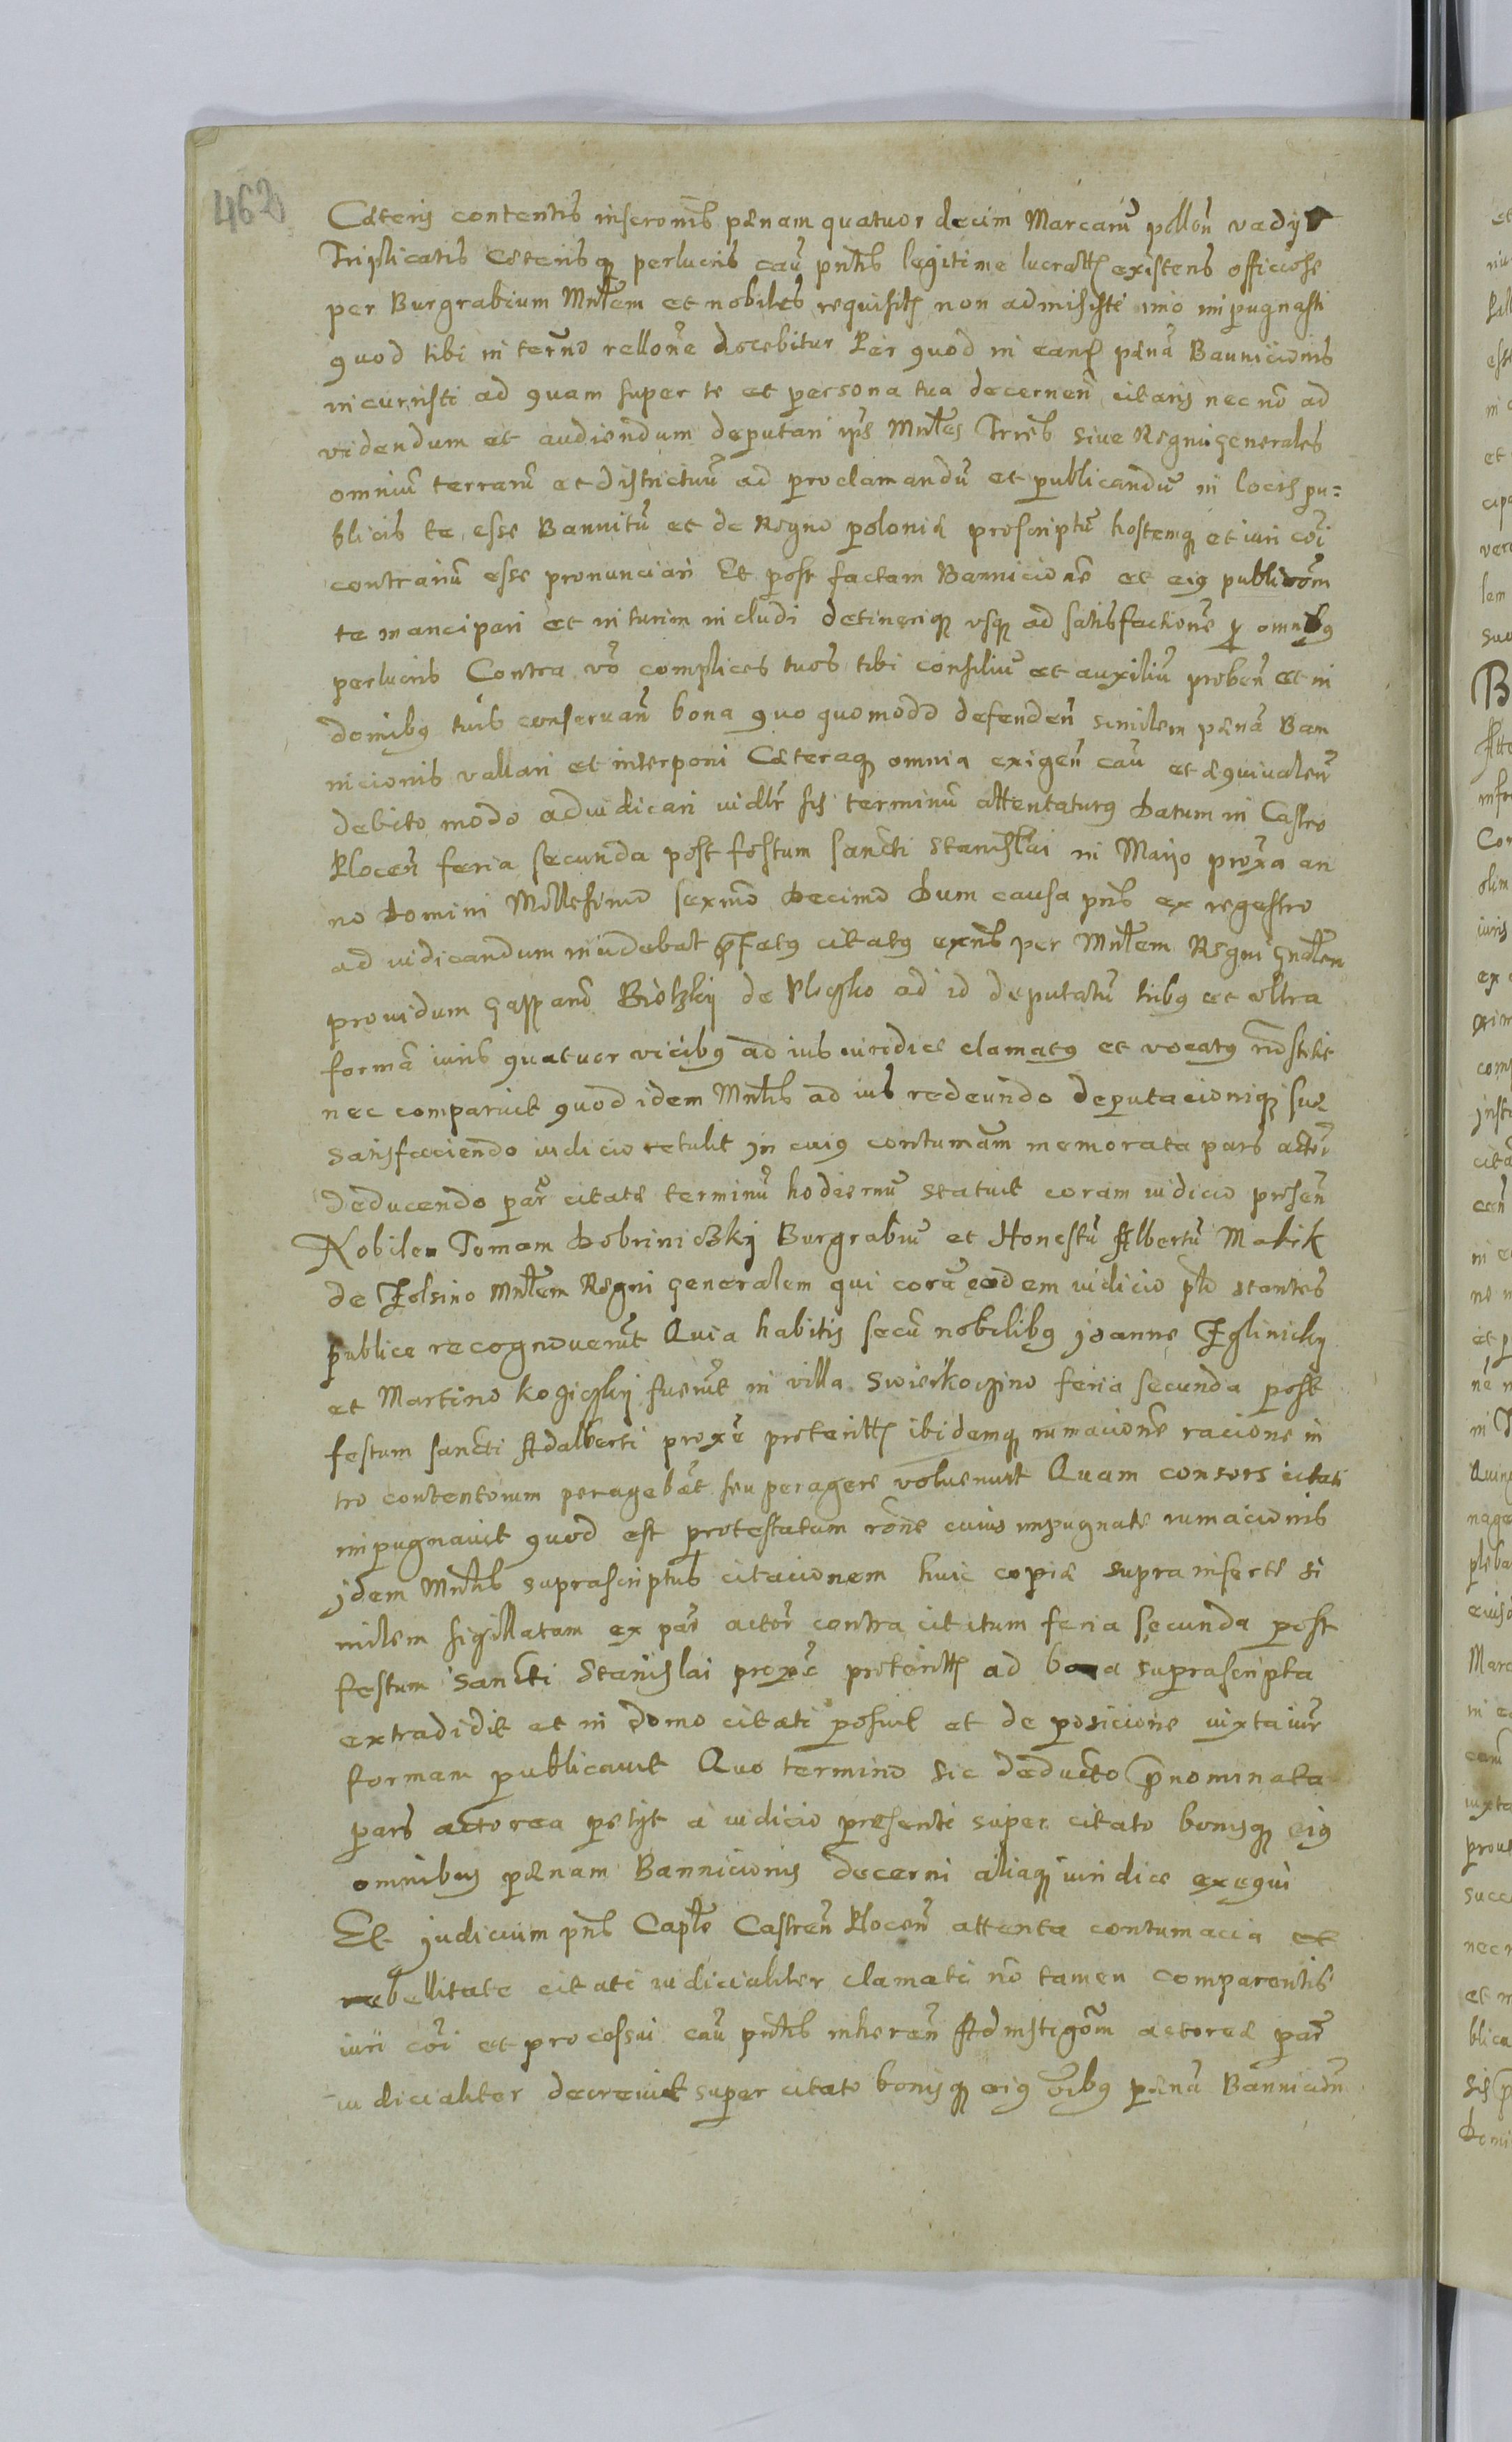 462
Cæteris contentis inscronis pænam quatuor decim Marcarũ pollon̄ vadys
Triplicatis Cæterisq perlucris caũ pntis legitime lucratis existens officiose
per Burgrabium Mnlem et nobiles requisitꝭ non admisisti imo impugnasti
quod tibi in terno rellone docebitur Per quod in eand pænã Bannicionis
incurristi ad quam super te et persona tua decernen̄ citaris nec nõ ad
videndum et audiendum deputari ips Mnles Trrēs siue Regni generales
omniũ terrarũ et districtuũ ad proclamandũ et publicandũ in locis pu=
blicis te esse Bannitũ et de Regno poloniæ proscriptũ hostemq et iuri coĩ
contrariũ esse pronunciari Et post factam Bannicionẽ et eius publicom
te mancipari et in turim includi detineriq usq ad satisfactionẽ p omnibus
perlucris Contra võ complices tuos tibi consiliũ et auxiliũ preben̄ et in
domibus tuis conseruan̄ bona quo quomodo defenden̄ similem pænã Ban
nicionis vallari et interponi Cæteraq omnia exigen̄ caũ et æquiualen̄
debito modo adiudicari vidlr sis terminũ attentaturus Datum in Castro
Plocen̄ feria secunda post festum sancti Stanislai in Mayo proxa an
no Domini Millesimo sexmo Decimo Dum causa pns ex regestro
ad iudicandum incidebat pfatus citatus exns per Mnlem Regni gnalem
prouidum Gasparũ Bielzky de Plocsko ad id deputatũ tribus et ultra
formã iuris quatuor vicibus ad ius iuridice clamatus et vocatus nõ stetit
nec comparuit quod idem Mnlis ad ius redeundo deputacioniq suæ
satisfaciendo iudicio retulit in cuius contumam memorata pars actor
deducendo par citatæ terminũ hodiernũ statuit coram iudicio presen̄
Nobiles Tomam Dobriniczky Burgrabiũ et Honestũ Albertũ Makik
de Zolsino Mnlem Regni generalem qui corã eodem iudicio pnti stantes
publice recognouerũt Quia habitis secũ nobilibus Joanne Zglinicky
et Martino Kogiczky fuerũt in villa Swierkoczino feria secunda post
festum sancti Adalberti proxe preteritꝭ ibidemq rumacionẽ racione in
tro contentorum peragebãt seu peragere voluerunt Quam consors citati
impugnauit quod est protestatum rõne cuius impugnatæ rumacionis
idem Mnlis suprascriptus citacionem huic copiæ supra insertæ si
milem sigillatam ex par actor contra citatum feria secunda post
festum Sancti Stanislai proxe preteritꝭ ad bona suprascripta
extradidit et in domo citati posuit et de posicione iuxta iur
formam publicauit Quo termino sic deducto pnominata
pars actorea petyt a iudicio presenti super citato bonisq eius
omnibus pænam Bannicionis decerni aliaq iuridice exequi
Et judicium pns Capl̃e Castren̄ Plocen̄ attenta contumacia et
rebellitate citati iudicialiter clamati nõ tamen comparentis
iuri coĩ et processui caũ pntis inheren̄ Ad instigom actoreæ par
iudicialiter decreuit super citato bonisq eius oĩbus pænã Bannicion